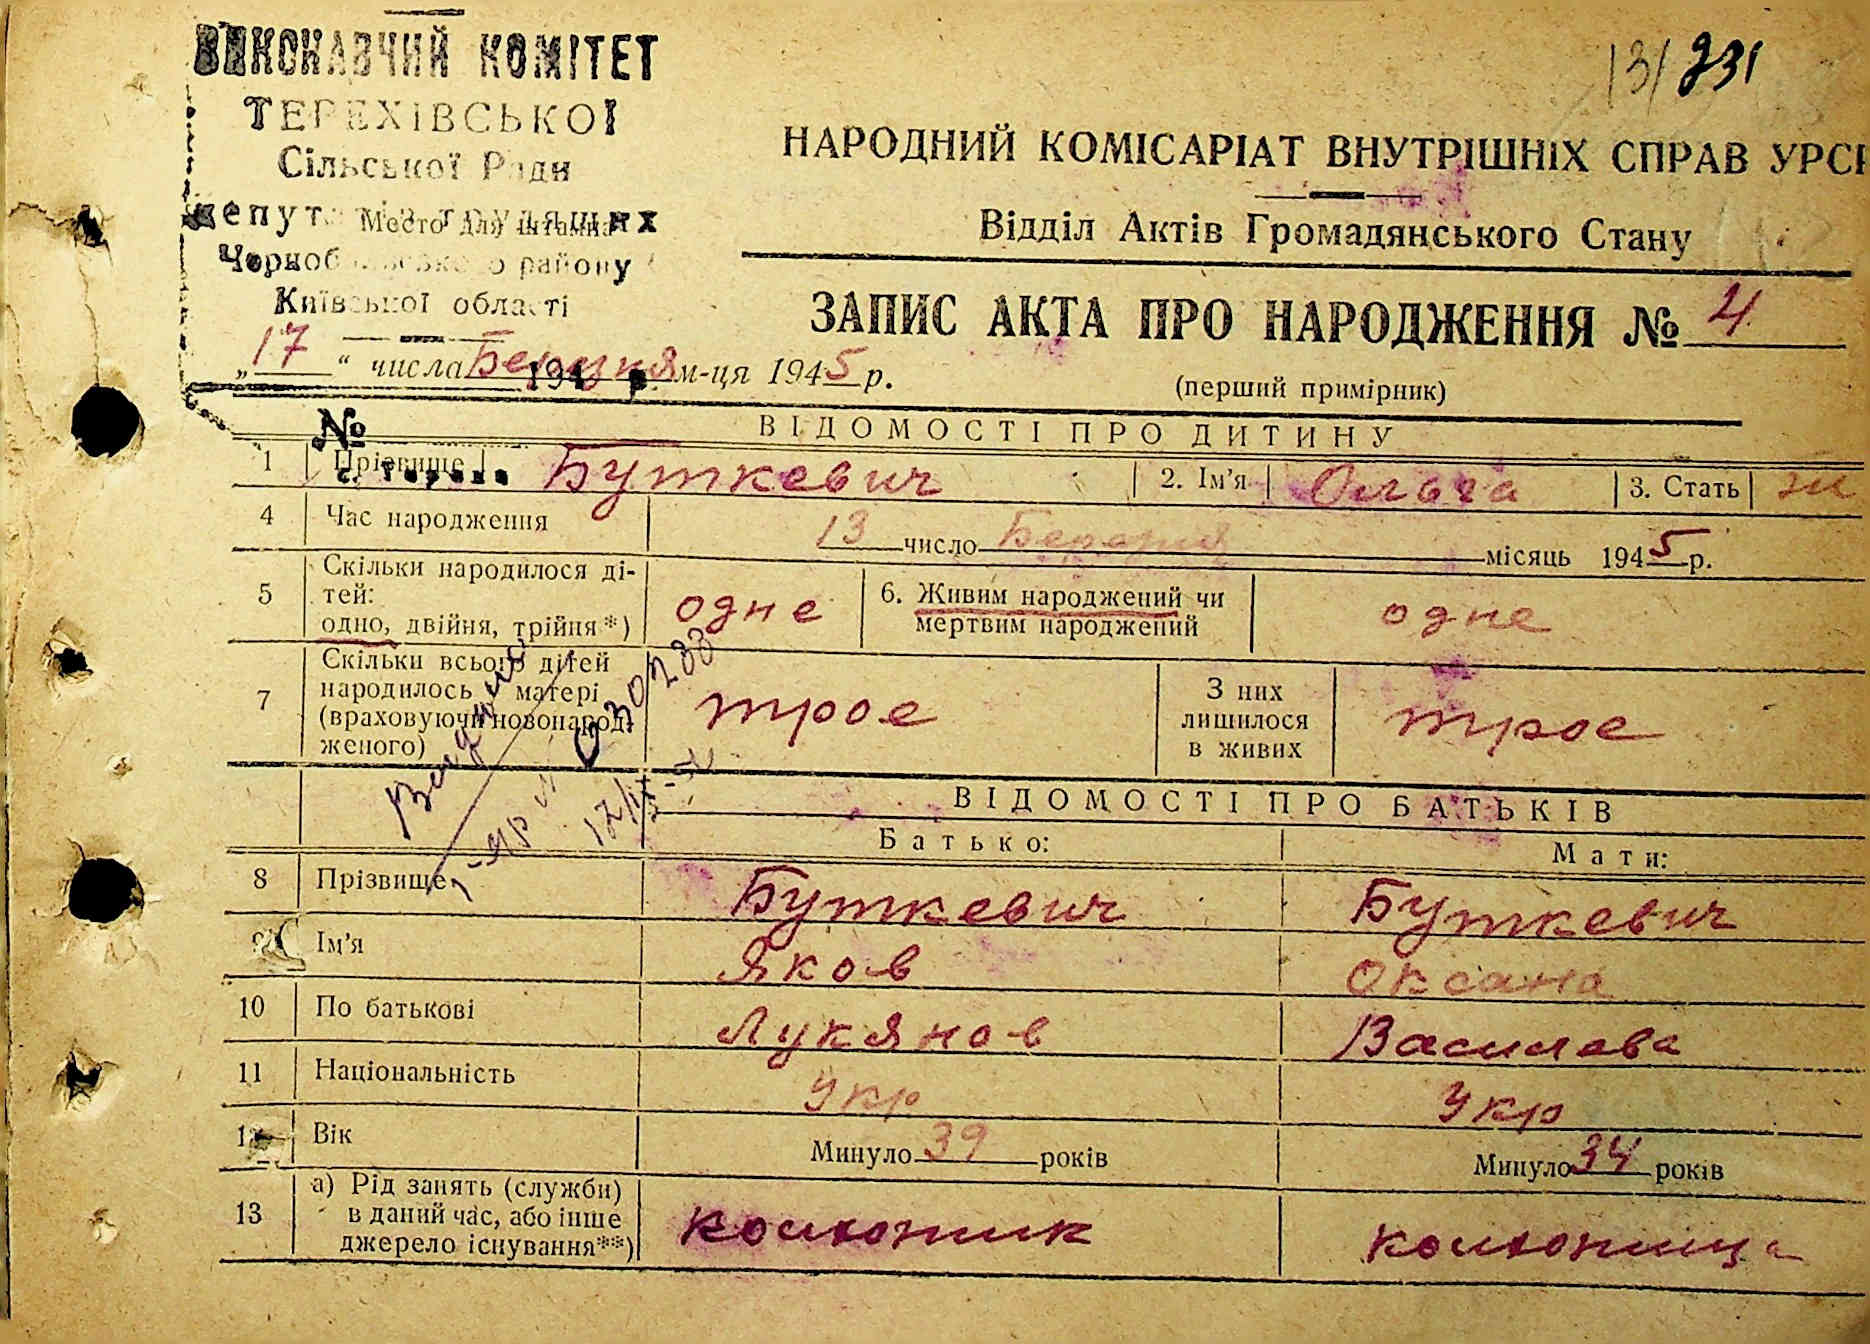 ВИКОНАВЧИЙ КОМІТЕТ
ТЕРЕХІВСЬКОЇ
Сільської Ради
депутатів трудящих
Место для штампа
Чорнобильського району
Київської області
13/231
НАРОДНИЙ КОМІСАРІАТ ВНУТРІШНІХ СПРАВ УРСР
Відділ Актів Громадянського Стану
ЗАПИС АКТА ПРО НАРОДЖЕННЯ № 4
„17“ числа Березня м-ця 1945 р.
194 р.
(перший примірник)
№
ВІДОМОСТІ ПРО ДИТИНУ
1 Прізвище Буткевич 2. Ім'я Ольга 3. Стать ж
4 Час народження 13 число Березня місяць 1945 р.
5 Скільки народилося ді-
тей:
одно, двійня, трійня*) одне 6. Живим народжений чи
мертвим народжений одне
7 Скільки всього дітей
народилось у матері
(враховуючи новонарод-
женого) троє З них
лишилося
в живих троє
Видано
307233
ВІДОМОСТІ ПРО БАТЬКІВ
Батько: Мати:
8 Прізвище Буткевич Буткевич
9 Ім'я Яков Оксана
10 По батькові Лукянов Василева
11 Національність Укр Укр
12 Вік Минуло 39 років Минуло 34 років
13 а) Рід занять (служби)
в даний час, або інше
джерело існування**) колхозник колхозница